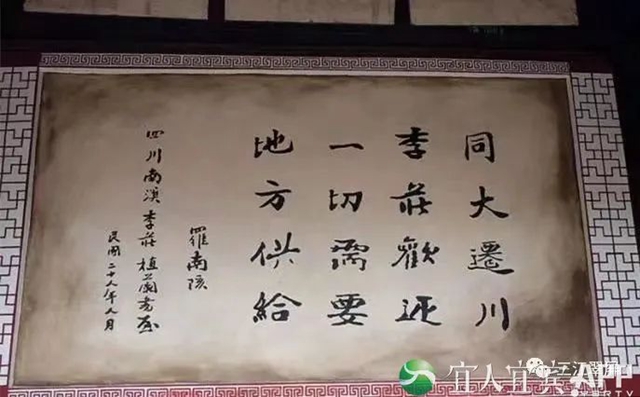 同大遷川
李莊歡迎
一切需要
地方供給
羅南陔
四川南溪李莊植蘭書屋
民國二十八年八月
宜人宜賓